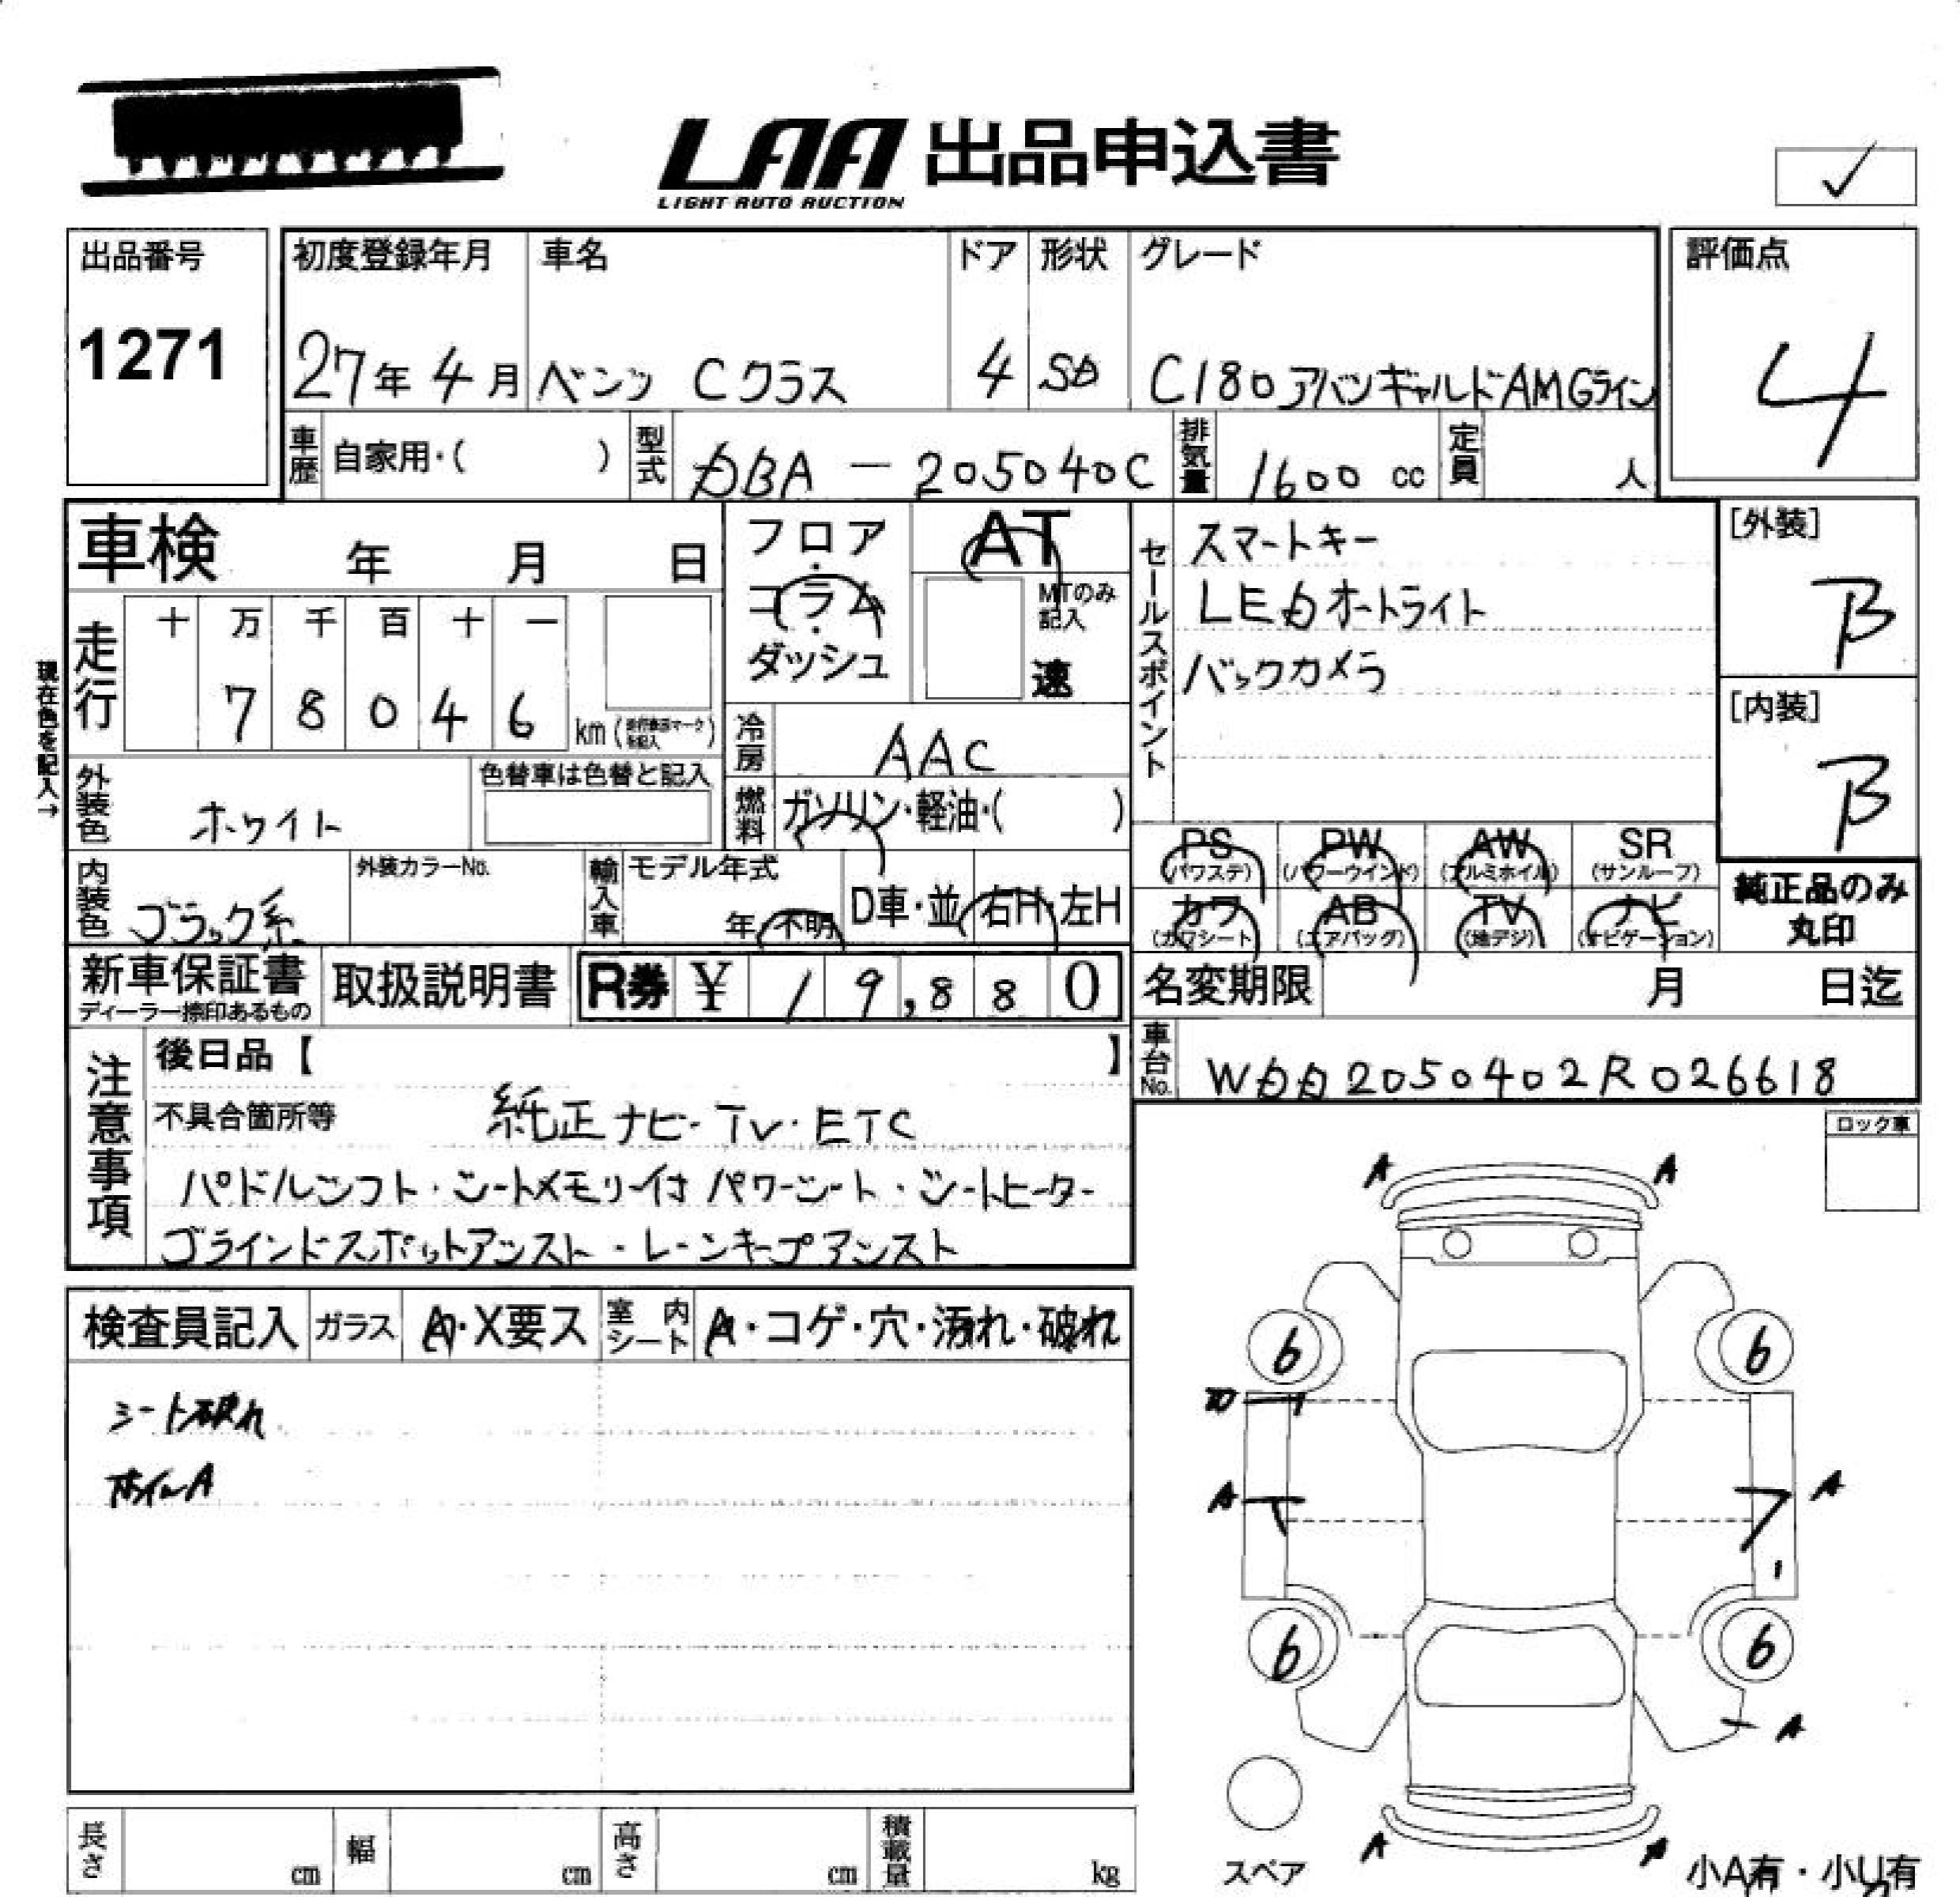 LAA 出品申込書
LIGHT AUTO AUCTION
出品番号
1271
初度登録年月
27年 4月
車名
ベンツ Cクラス
ドア
4
形状
SD
グレード
C180アバンギャルドAMGライン
評価点
4
車歴 自家用・( )
型式 DBA-205040C
排気量 1600 cc
定員 人
車検 年 月 日
フロア・コラム・ダッシュ
AT
MTのみ記入
速
セールスポイント
スマートキー
LEDオートライト
バックカメラ
[外装]
B
[内装]
B
現在色を記入→
走行
十 万 千 百 十 一
7 8 0 4 6 km
冷房 AAC
外装色 ホワイト
色替車は色替と記入
燃料 ガソリン・軽油・( )
内装色 ブラック系
外装カラーNo.
輸入車
モデル年式
年 不明
D車・並 右H・左H
PS (パワステ)
PW (パワーウインド)
AW (アルミホイル)
SR (サンルーフ)
カワ (カワシート)
AB (エアバッグ)
TV (地デジ)
ナビ (ナビゲーション)
純正品のみ
丸印
新車保証書
ディーラー捺印あるもの
取扱説明書
R券 ¥ 19,880
名変期限 月 日迄
車台No. WDD2050402R026618
注意事項
後日品【 】
不具合箇所等
純正ナビ・TV・ETC
パドルシフト・シートメモリー付パワーシート・シートヒーター
ブラインドスポットアシスト・レーンキープアシスト
ロック車
検査員記入
ガラス A・X要ス
室内シート A・コゲ・穴・汚れ・破れ
シート破れ
ホイルA
A A
6 6
A A
6 6
A
A A
スペア
小A有・小U有
長さ cm
幅 cm
高さ cm
積載量 kg